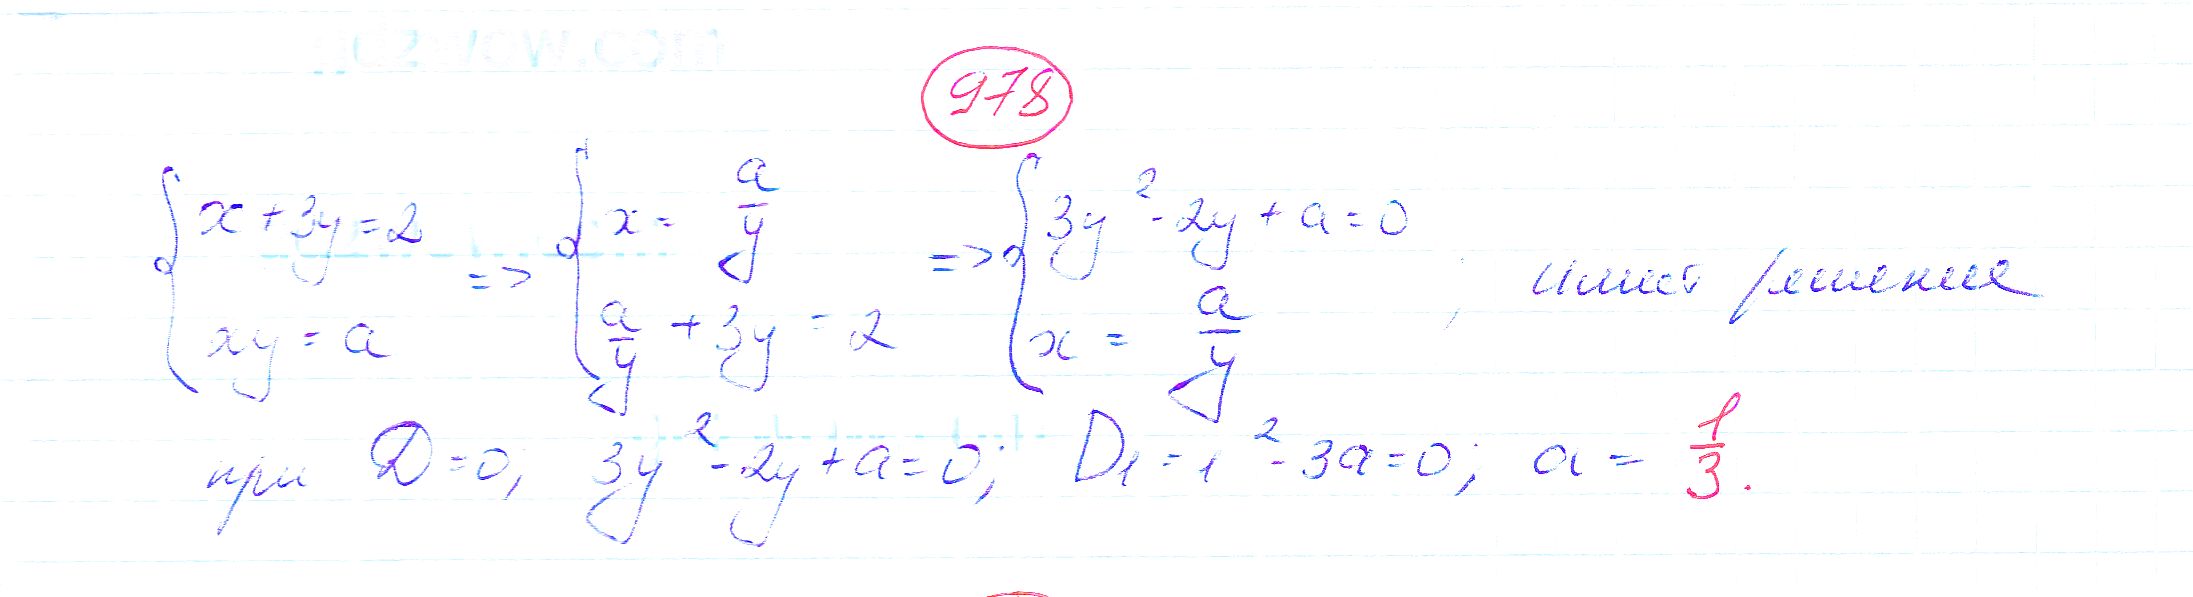 978
{ x + 3y = 2, xy = a => { x = a/y, a/y + 3y = 2 => { 3y² - 2y + a = 0, x = a/y ; имеет решение
при D = 0; 3y² - 2y + a = 0; D₁ = 1² - 3a = 0; a = 1/3.